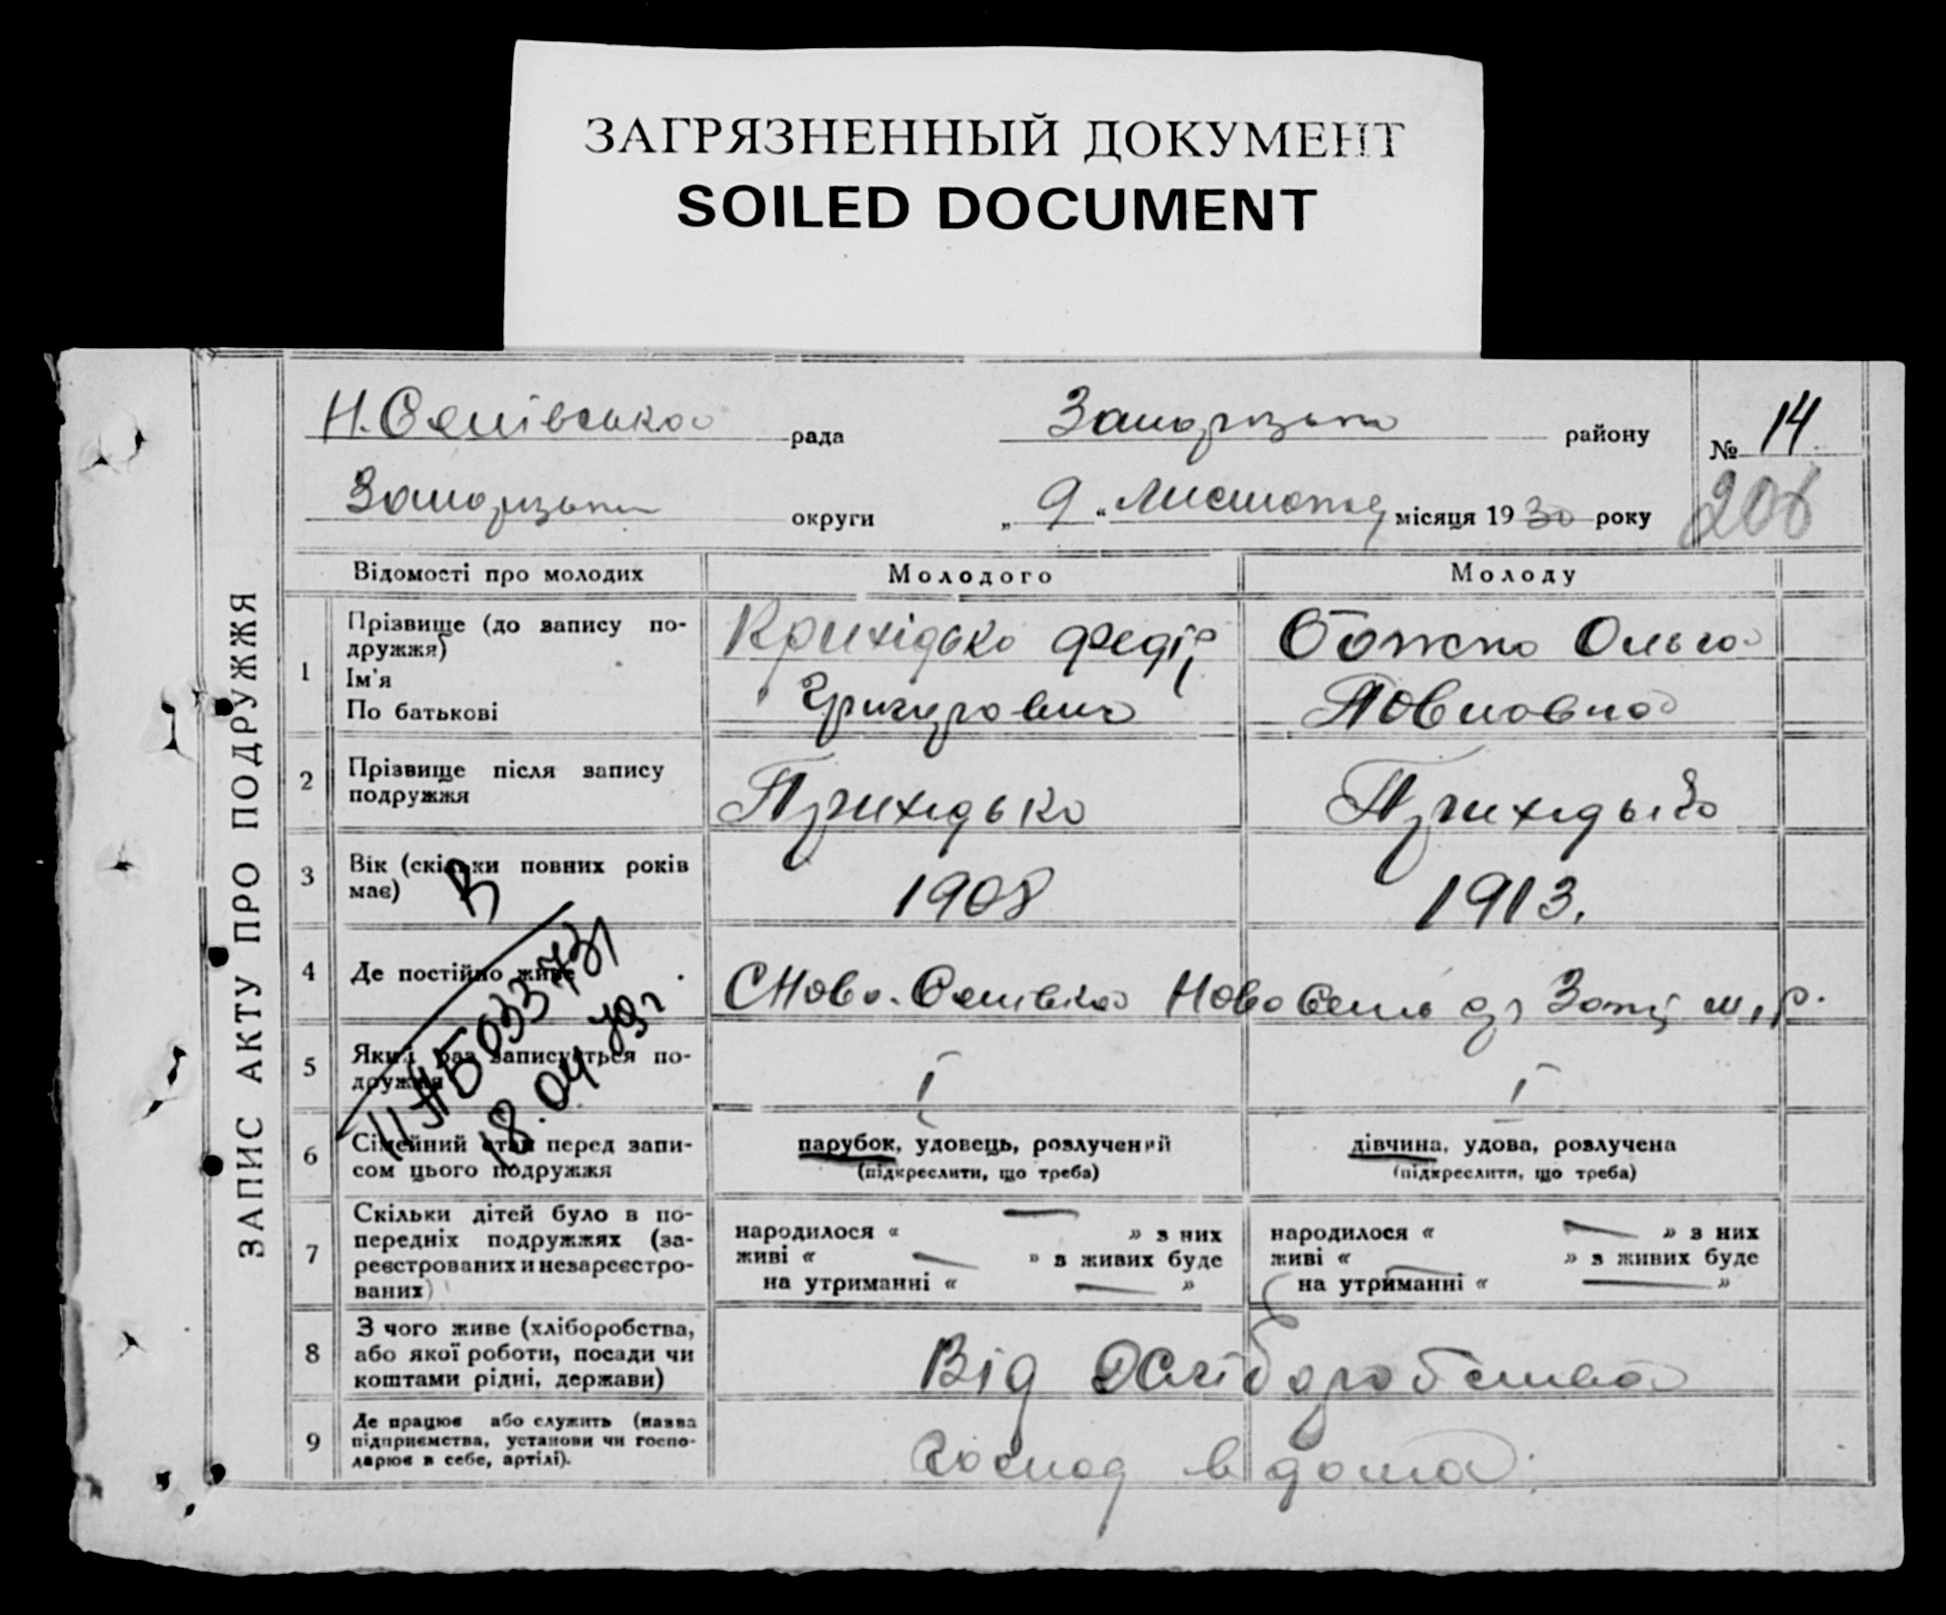 ЗАГРЯЗНЕННЫЙ ДОКУМЕНТ
SOILED DOCUMENT
ЗАПИС АКТУ ПРО ПОДРУЖЖЯ
рада
району
№ 14
206
округи
„ 9 “ місяця 19 30 року
Відомості про молодих
Молодого
Молоду
1
Прізвище (до запису по-
дружжя)
Ім'я
По батькові
Федір
Божко Ольга
Павловна
2
Прізвище після запису
подружжя
Прихідько
Прихідько
3
Вік (скільки повних років
має)
1908
1913.
4
Де постійно живе
5
Який раз записується по-
дружжя
I
I
В
II АБ 033731
18.04 79г
6
Сімейний стан перед запи-
сом цього подружжя
парубок, удовець, розлучений
(підкреслити, що треба)
дівчина, удова, розлучена
(підкреслити, що треба)
7
Скільки дітей було в по-
передніх подружжях (за-
реєстрованих и незареєстро-
ваних)
народилося « — » з них
живі « — » з живих буде
на утриманні « — »
народилося « — » з них
живі « — » з живих буде
на утриманні « — »
8
З чого живе (хліборобства,
або якої роботи, посади чи
коштами рідні, держави)
Від Хліборобства
9
Де працює або служить (назва
підприємства, установи чи госпо-
дарює в себе, артілі).
Господ в дома